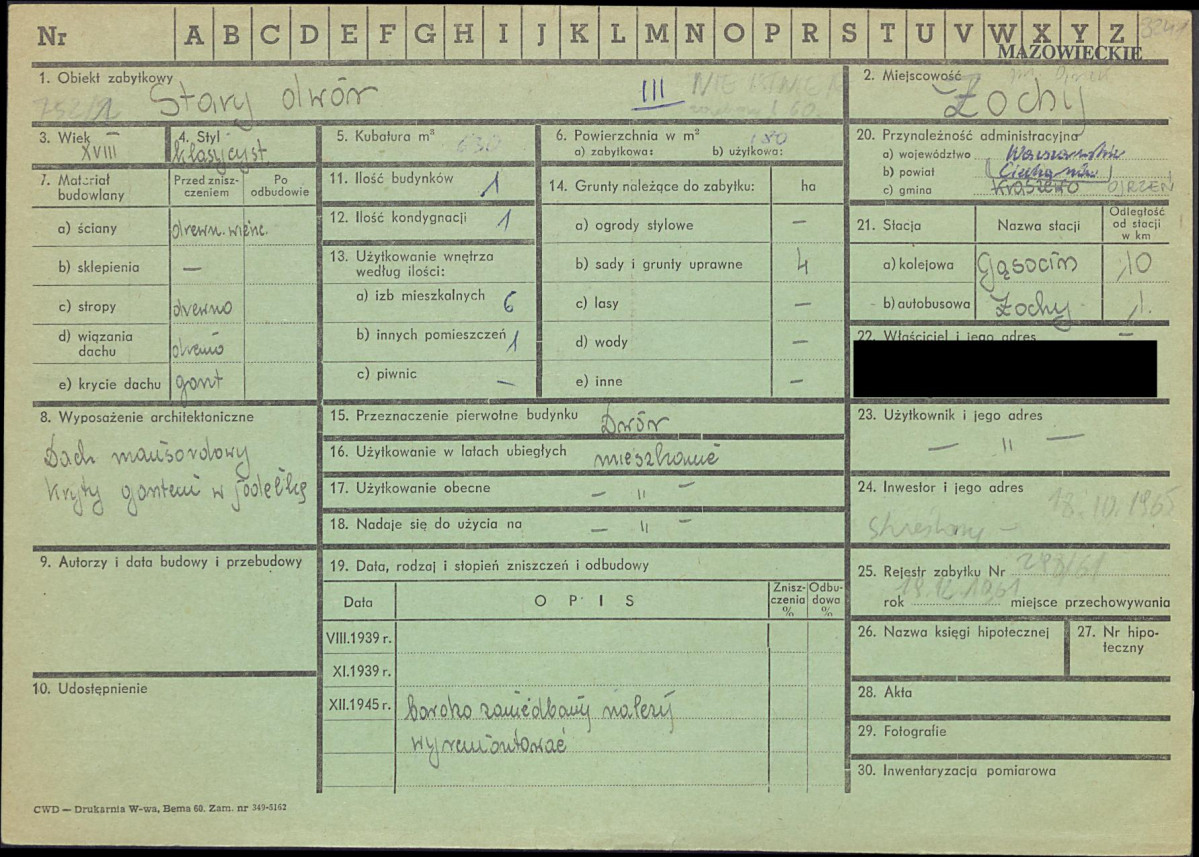 Nr A B C D E F G H I J K L M N O P R S T U V W X Y Z 3241
MAZOWIECKIE
1. Obiekt zabytkowy
752/2 Stary dwór III NIE ISTNIEJE
60
2. Miejscowość
Żochy
3. Wiek
XVIII
4. Styl
klasycyst.
5. Kubatura m³ 630
6. Powierzchnia w m² 180
a) zabytkowa: b) użytkowa:
20. Przynależność administracyjna
a) województwo Warszawskie
b) powiat Ciechanów
c) gmina Kraszewo OJRZEŃ
7. Materiał budowlany
Przed zniszczeniem
Po odbudowie
a) ściany drewn. wieńc.
b) sklepienia —
c) stropy drewno
d) wiązania dachu drewno
e) krycie dachu gont
11. Ilość budynków 1
12. Ilość kondygnacji 1
13. Użytkowanie wnętrza według ilości:
a) izb mieszkalnych 6
b) innych pomieszczeń 1
c) piwnic —
14. Grunty należące do zabytku: ha
a) ogrody stylowe —
b) sady i grunty uprawne 4
c) lasy —
d) wody —
e) inne —
21. Stacja Nazwa stacji Odległość od stacji w km
a) kolejowa Gąsocin 10
b) autobusowa Żochy 1.
22. Właściciel i jego adres
8. Wyposażenie architektoniczne
Dach mansardowy
kryty gontem w jodełkę
15. Przeznaczenie pierwotne budynku Dwór
16. Użytkowanie w latach ubiegłych mieszkanie
17. Użytkowanie obecne — " —
18. Nadaje się do użycia na — " —
23. Użytkownik i jego adres
— " —
24. Inwestor i jego adres
18.10.1965
skreślony —
9. Autorzy i data budowy i przebudowy
19. Data, rodzaj i stopień zniszczeń i odbudowy
Data OPIS Zniszczenia % Odbudowa %
VIII.1939 r.
XI.1939 r.
XII.1945 r. bardzo zaniedbany należy
wyremontować
25. Rejestr zabytku Nr 298/61
rok 19.12.1961 miejsce przechowywania
26. Nazwa księgi hipotecznej
27. Nr hipoteczny
10. Udostępnienie
28. Akta
29. Fotografie
30. Inwentaryzacja pomiarowa
CWD — Drukarnia W-wa, Bema 60. Zam. nr 349-5162